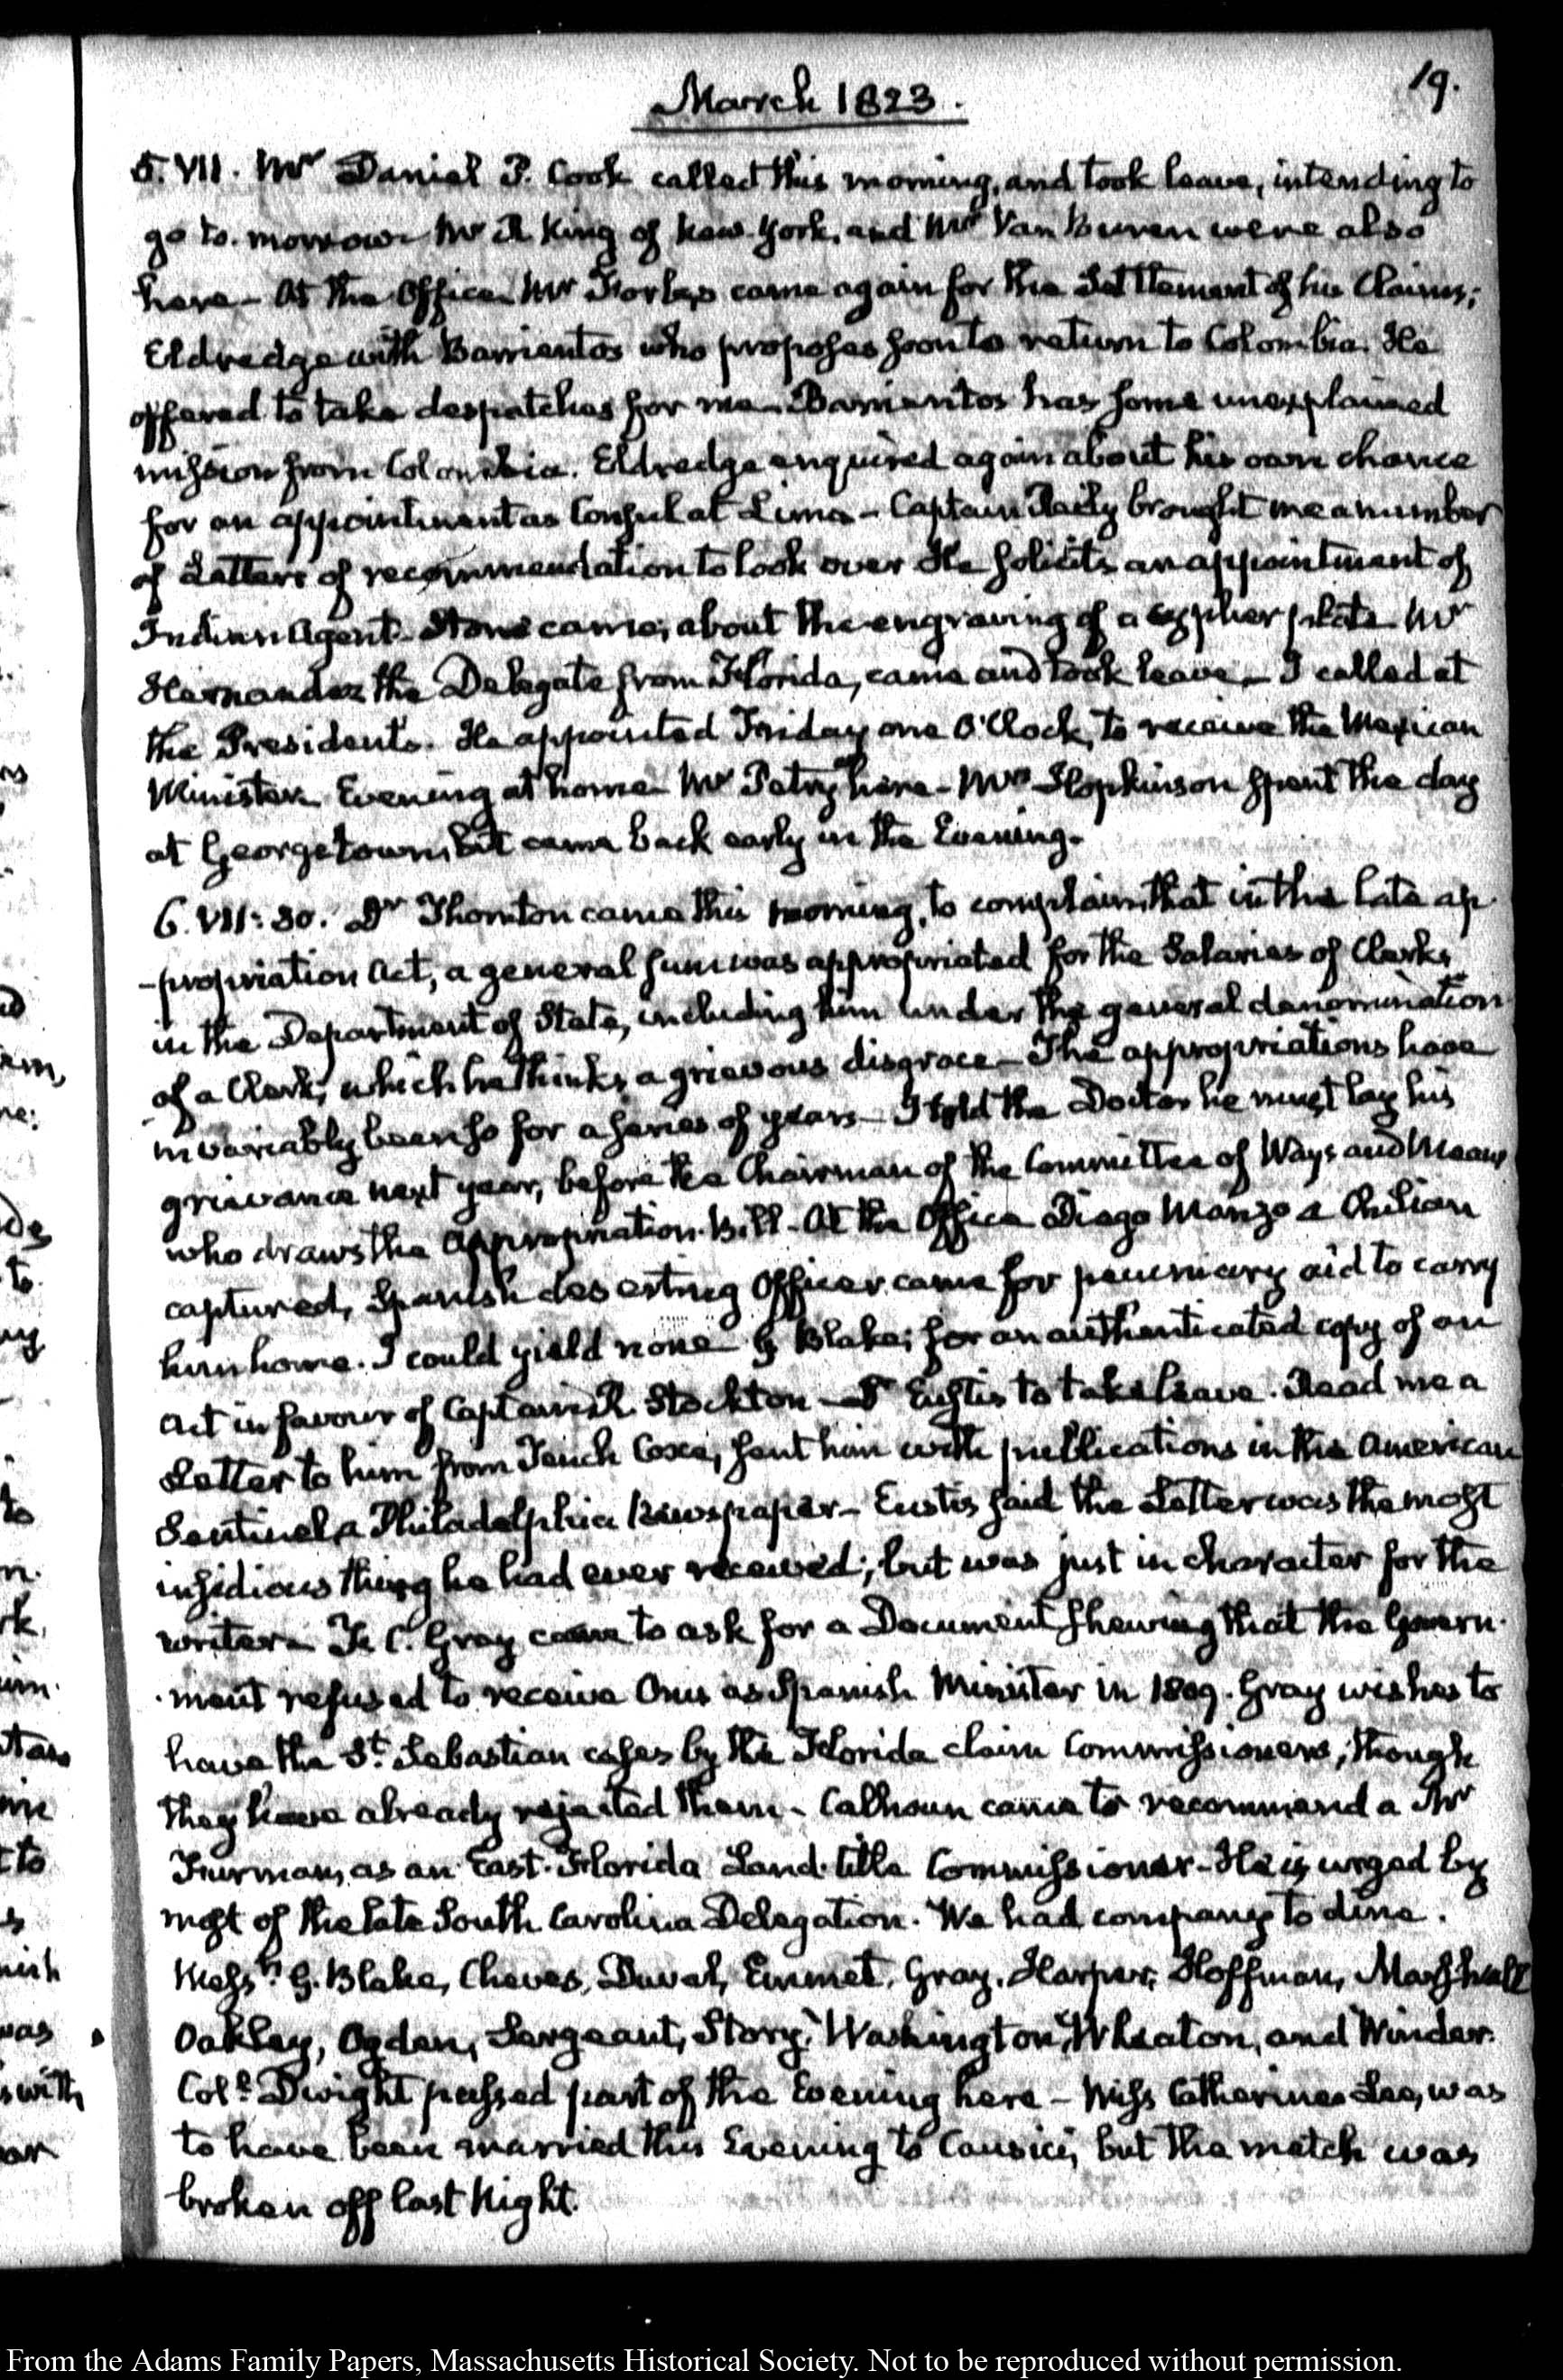 19.
March 1823.
5. VII. Mr Daniel P. Cook called this morning, and took leave, intending to
go to-morrow. Mr R King of New-York, and Mr Van Buren were also
here— At the Office Mr Forbes came again for the Settlement of his Claims;
Eldredge with Barrientos who proposes soon to return to Colombia. He
offered to take despatches for me. Barrientos has some unexplained
mission from Colombia. Eldredge enquired again about his own chance
for an appointment as Consul at Lima— Captain brought me a number
of Letters of recommendation to look over He solicits an appointment of
Indian Agent— Stone came, about the engraving of a cypher plate Mr
Hernandez the Delegate from Florida, came and took leave— I called at
the President's. He appointed Friday one O'Clock, to receive the Mexican
Minister. Evening at home Mr Petry here— Mrs Hopkinson spent the day
at Georgetown, but came back early in the Evening.
6. VII:30. Dr Thornton came this morning, to complain that in the late ap-
-propriation Act, a general sum was appropriated for the Salaries of Clerks
in the Department of State, including him under the general denomination
of a Clerk; which he thinks a grievous disgrace— The appropriations have
invariably been so for a series of years— I told the Doctor he must lay his
grievance next year, before the Chairman of the Committee of Ways and Means
who draws the Appropriation Bill— At the Office Diego Manzo a Chilian
captured, Spanish deserting Officer came for pecuniary aid to carry
him home. I could yield none G Blake; for an authenticated copy of an
Act in favour of Captain R Stockton— Dr Eustis to take leave. Read me a
Letter to him from Tench Coxe, sent him with publications in the American
Sentinel a Philadelphia Newspaper— Eustis said the Letter was the most
insidious thing he had ever received; but was just in character for the
writer— F. C. Gray came to ask for a Document shewing that the Govern-
-ment refused to receive Onis as Spanish Minister in 1809. Gray wishes to
have the St. Sebastian cases by the Florida claim Commissioners, though
they have already rejected them— Calhoun came to recommend a Mr
Furman, as an East-Florida Land-title Commissioner— He is urged by
most of the late South Carolina Delegation. We had company to dine.
Messrs. G. Blake, Cheves, Duval, Emmet, Gray, Harper, Hoffman, Marshall
Oakley, Ogden, Sergeant, Story, Washington, Wheaton, and Winder.
Coll. Dwight passed part of the Evening here— Miss Catherine Lee, was
to have been married this Evening to Causici, but the match was
broken off last Night.
From the Adams Family Papers, Massachusetts Historical Society. Not to be reproduced without permission.